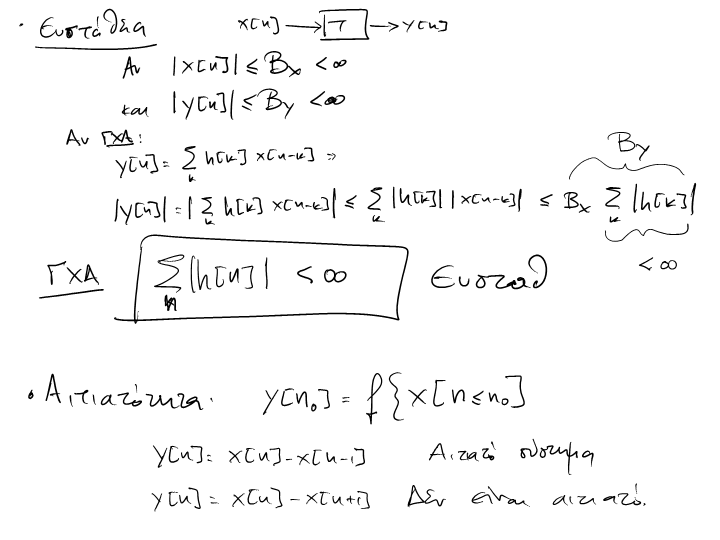 · Ευστάθεια x[n] → T → y[n]
Αν |x[n]| ≤ Bx < ∞
και |y[n]| ≤ By < ∞
Αν ΓΧΑ:
y[n] = Σ_k h[k] x[n-k] ⇒
By
|y[n]| = |Σ_k h[k] x[n-k]| ≤ Σ_k |h[k]| |x[n-k]| ≤ Bx Σ_k |h[k]|
< ∞
ΓΧΑ Σ_n |h[n]| < ∞ Ευσταθ
· Αιτιατότητα: y[n₀] = f{x[n≤n₀]
y[n] = x[n] - x[n-1] Αιτατό σύστημα
y[n] = x[n] - x[n+1] Δεν είναι αιτιατό.